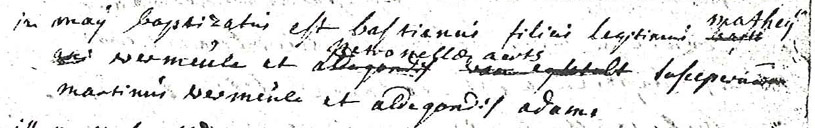 in maÿ baptizatus est bastianus filius legitimus matheÿ
vermeúle et petronellæ aerts susceperunt
martinús vermeúle et aldegondis adams